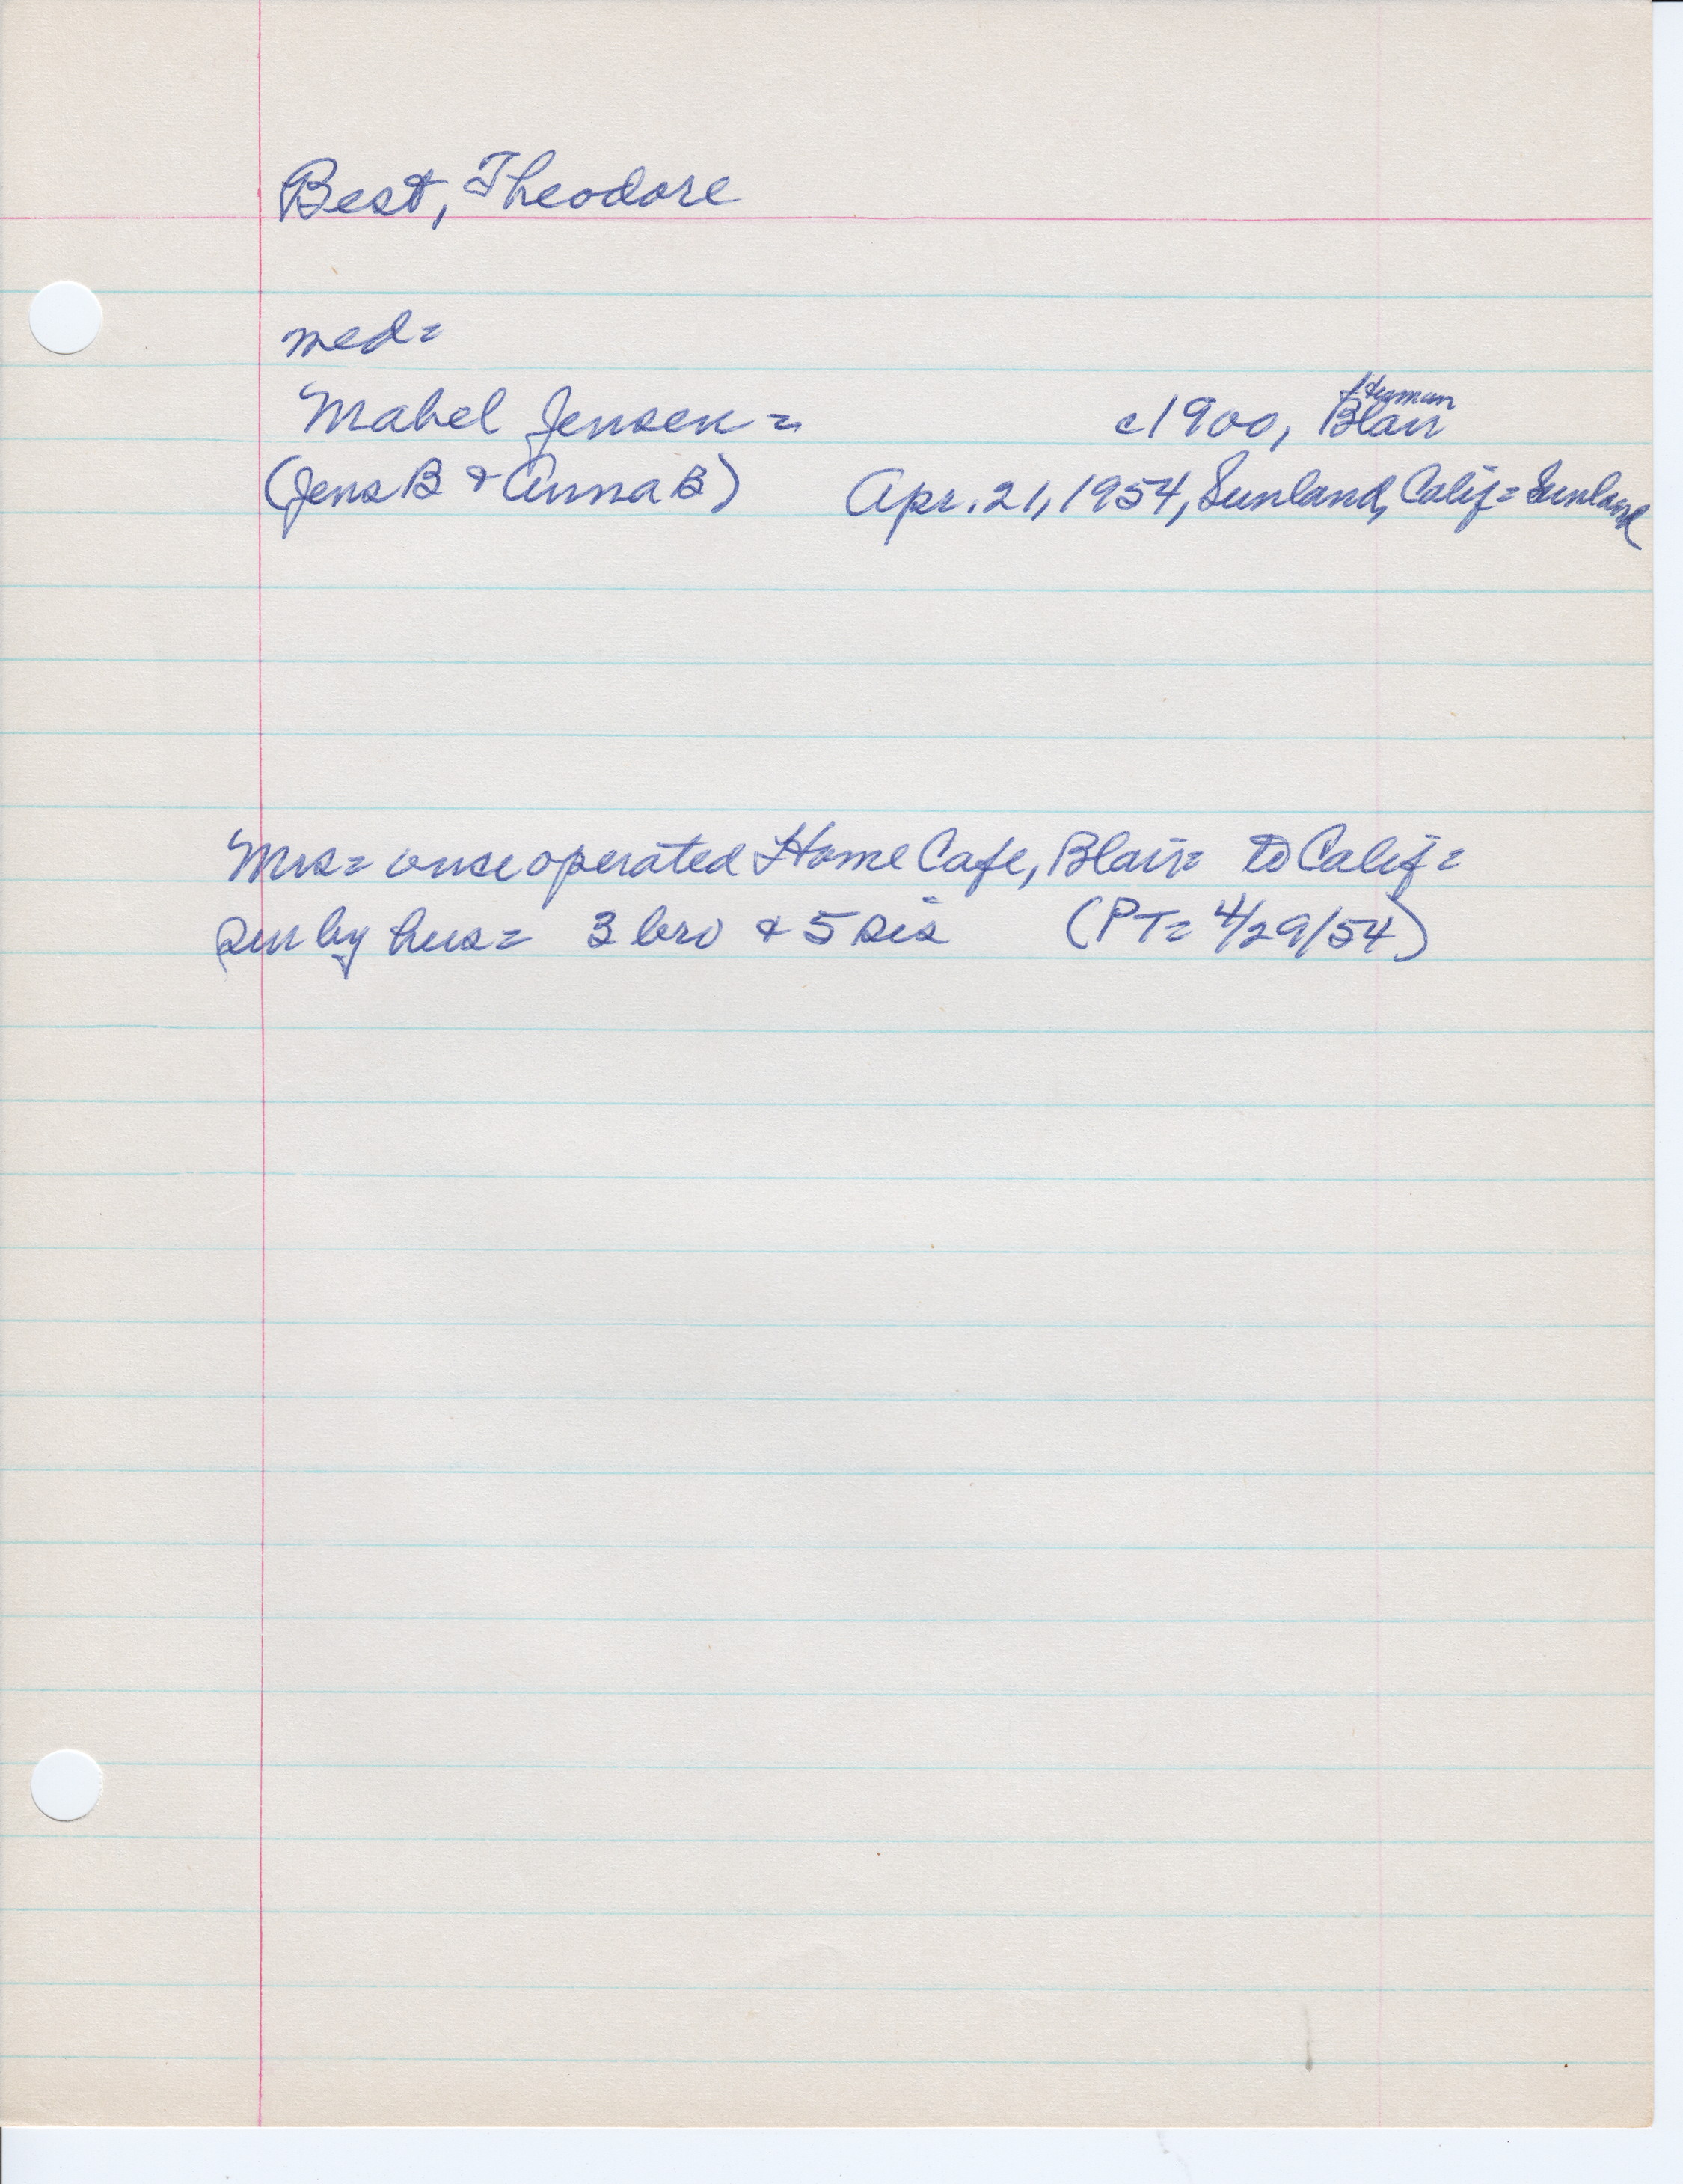 Best, Theodore
med=
Herman
Mabel Jensen = c1900, Blair
(Jens B & Anna B) Apr. 21, 1954, Sunland, Calif = Sunland
Mrs= once operated Home Cafe, Blair= to Calif=
sur by hus= 3 bro & 5 sis (PT= 4/29/54)